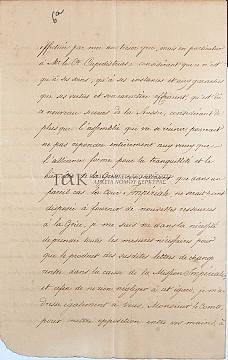 6a
effectuée par moi au trésor grec, mais en particulier
à Mr le Cte Capodistrias; considérant que ce n'est
qu'à ses soins, qu'à ses instances et aux garanties
que ses vertus et son caractère offraient, qu'est dû
ce nouveau secours de la Russie, considérant de
plus que l'assemblée qui va se réunir pourrait
ne pas répondre entièrement aux vœux que
l'alliance forme pour la tranquillité et le
de la qui dans un
pareil cas la Cour Impériale ne serait plus
disposée à fournir de nouvelles ressources
à la Grèce, je me suis vu dans la nécessité
de prendre toutes les mesures nécessaires pour
que le produit des susdites lettres de change
rentre dans la caisse de la Mission Impériale
et afin de ne rien négliger à cet égard, je m'a-
dresse également à Vous, Monsieur le Comte,
pour mettre opposition entre vos mains, à
ΙΑΚ
ΑΡΧΕΙΑ ΝΟΜΟΥ ΚΕΡΚΥΡΑΣ